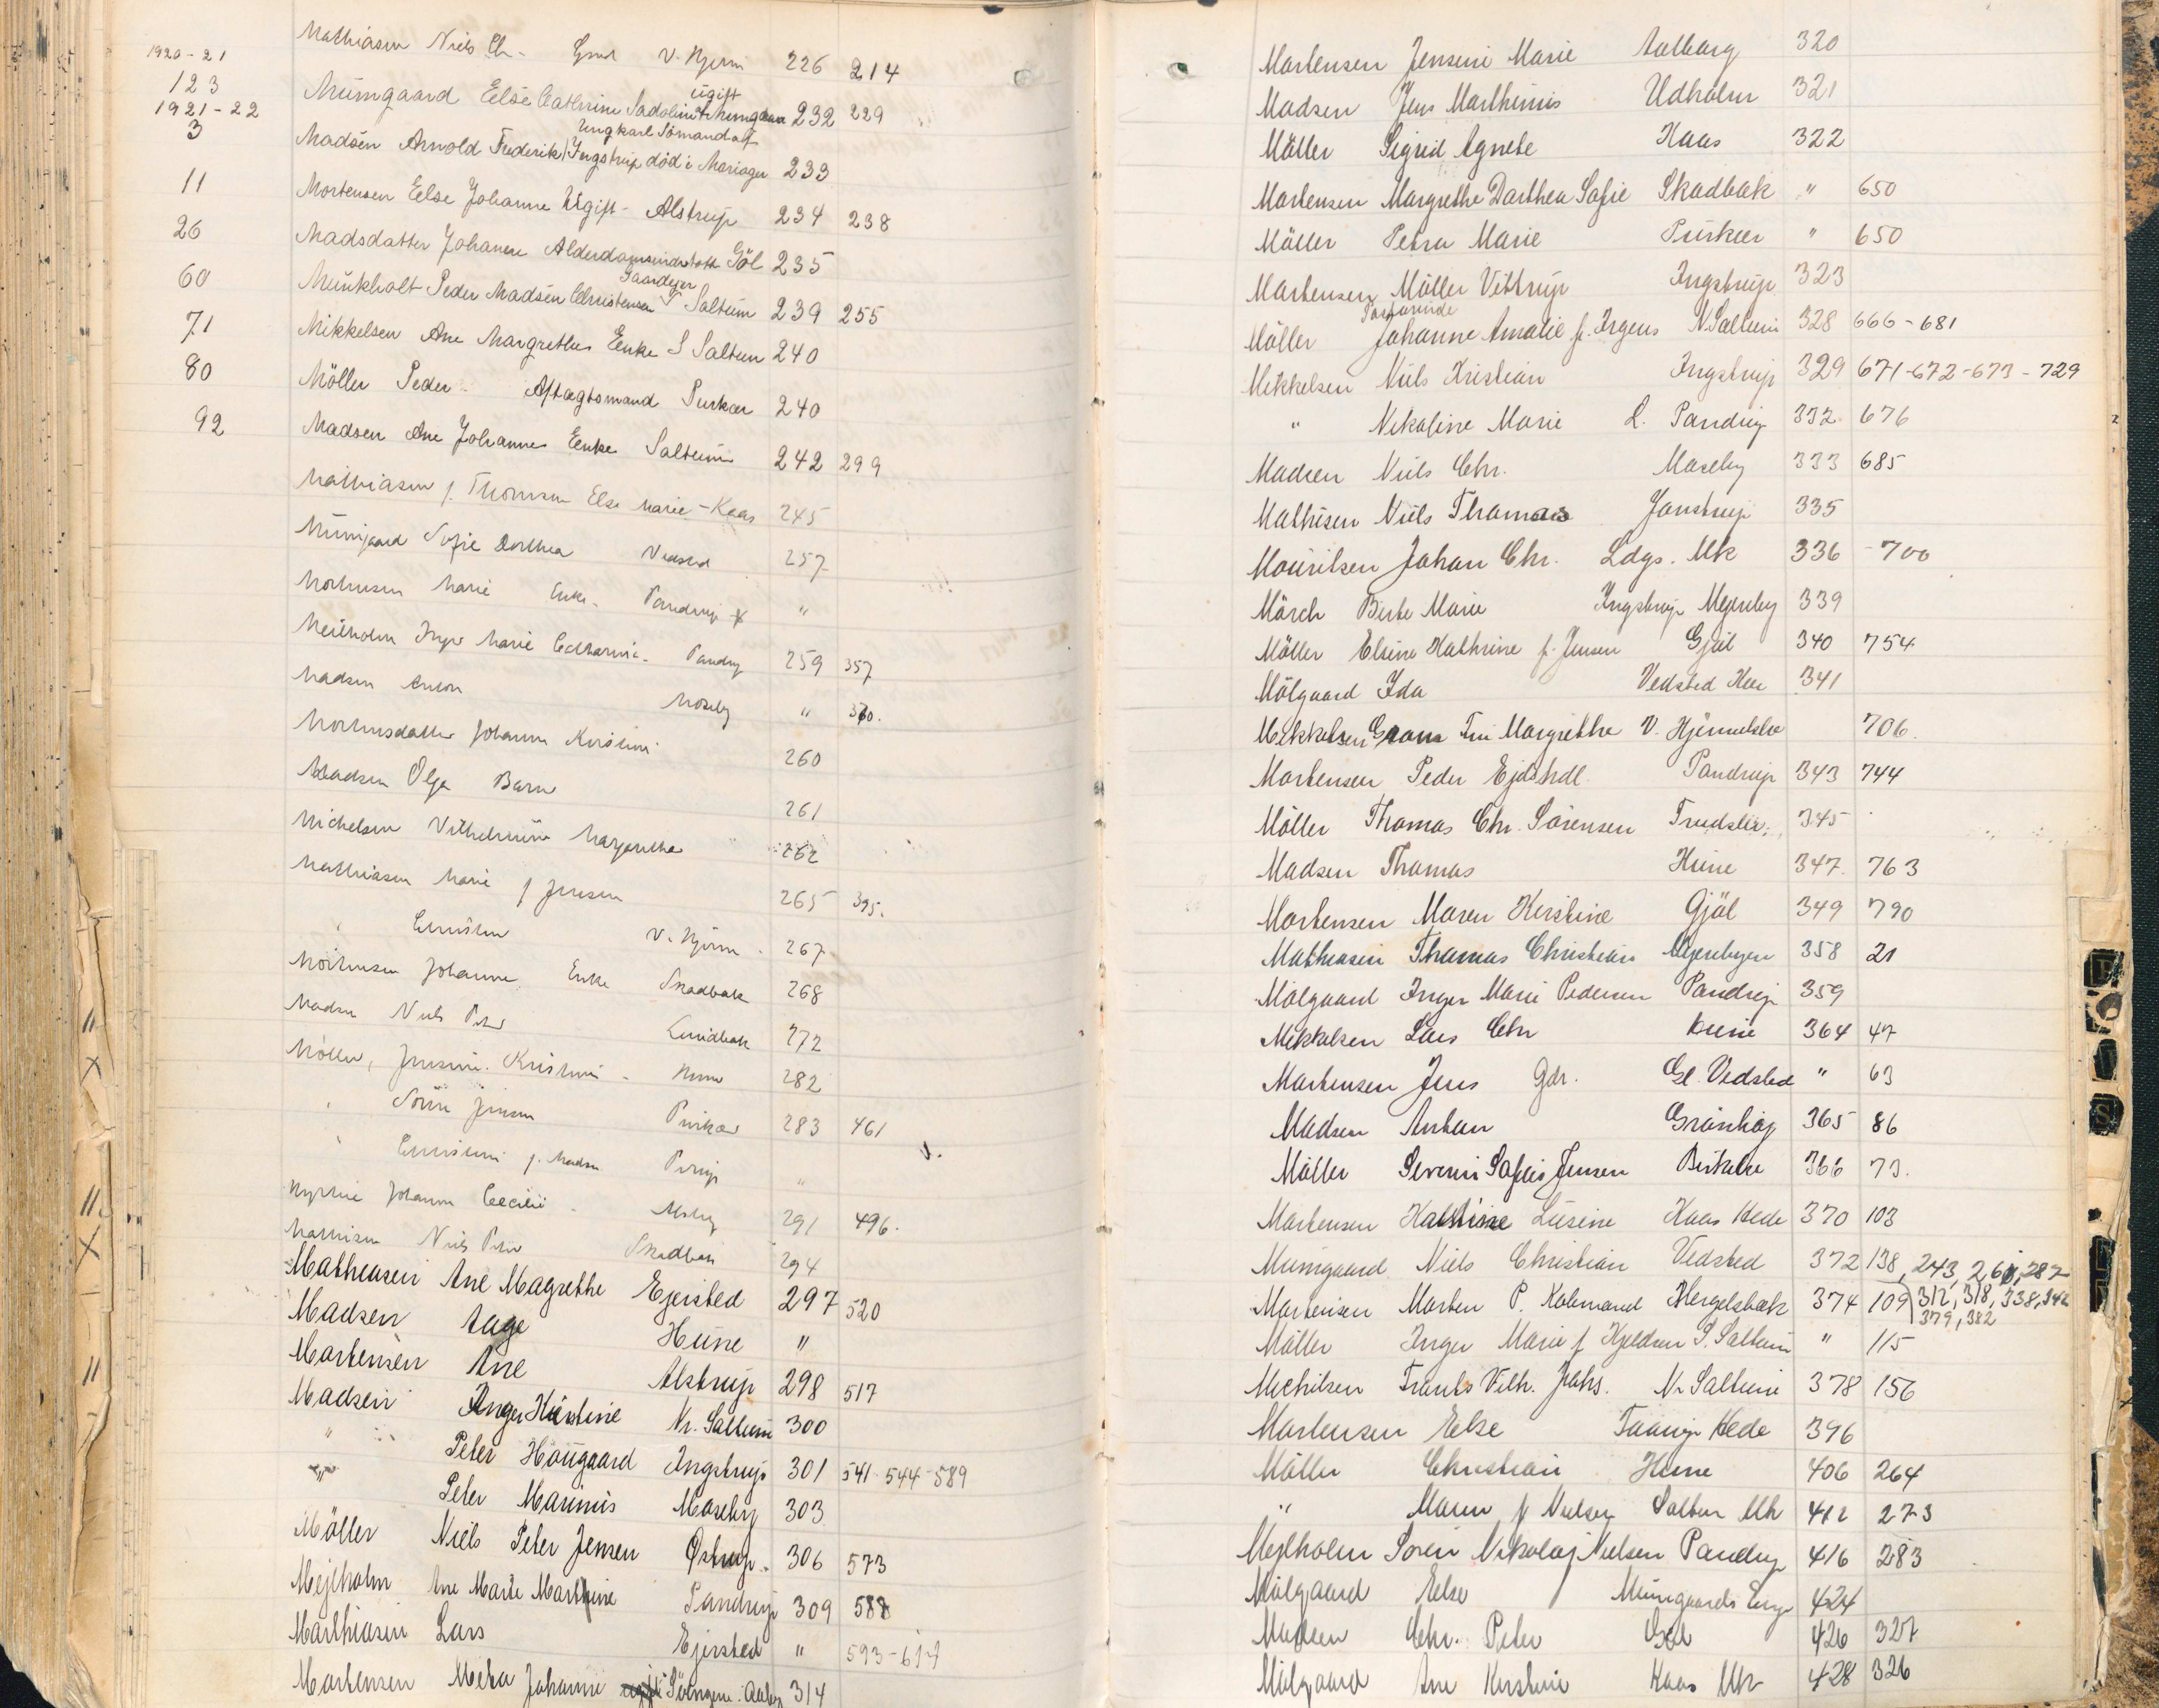 Mathiasen Niels Ch- Gmd V. Hjerm 226 214
1920-21
123 Munngaard Else Cathrine Sadolin ugift Munngaard 232 229
1921-22
3 Madsen Arnold Frederik Ungkarl Sömand af Ingstrup död i Mariager 233
11 Mortensen Else Johanne Ugift - Alstrup 234 238
26 Madsdatter Johanne Alderdomsunderstött Göl 235
60 Munkholt Peder Madsen Christensen Gaardejer S Saltum 239 255
71 Mikkelsen Ane Margrethe Enke S Saltum 240
80 Möller Peder - Aftægtsmand Purkær 240
92 Madsen Ane Johanne Enke Saltum 242 299
Mathiasen f. Thomsen Else Marie - Kaas 245
Munngaard Sofie Dorthea Vedsted 257
Mortensen Marie Enke - Pandrup "
Mejlholm Inger Marie Catharine - Pandrup 259 357
Madsen Anton Moseby " 360.
Mortensdatter Johanne Kristine 260
Madsen Olga Barn 261
Michelsen Vilhelmine Margrethe 262
Mathiasen Marie f Jensen 265 395.
" Christen V. Hjerm - 267
Mortensen Johanne, Enke Skadbak 268
Madsen Niels Peter Lundbak 272
Möller, Jensine Kristine - Hune 282
" Sören Jensen Purkær 283 461
" Christine f. Madsen "
Johanne Cecilie - Moseby 291 496.
Mathiasen Niels Peter Skadbak 294
Matheasen Ane Magrethe Ejersted 297 520
Madsen Aage Hune "
Martensen Ane Alstrup 298 517
Madsen Inger Kirstine Nr. Saltum 300
" Peter Haugaard Ingstrup 301 541-544-589
" Peter Marinus Maseby 303
Möller Niels Peter Jensen Østrup. 306 573
Mejlholm Ane Marie Marthine Pandrup 309 588
Mathiasen Lars Ejersted " 593-614
Martensen Meta Johanne 314
Martensen Jensine Marie Aalborg 320
Madsen Jens Marthinus Udholm 321
Möller Sigrid Agnete Kaas 322
Martensen Margrethe Darthea Safie Skadbak " 650
Möller Petra Marie Purkær " 650
Martensen Möller Vittrup Ingstrup 323
Möller Johanne Amalie f. Irgens N. Saltum 328 666-681
Mikkelsen Niels Kristian Ingstrup 329 671-672-673-729
" Nikoline Marie L. Pandrup 332 676
Madsen Niels Chr. Maseby 333 685
Mathisen Niels Thomas Janstrup 335
Mouritsen Johan Chr. Ldgs. Mk 336 -700
Mörch Berte Marie Ingstrup Mejerby 339
Möller Elsine Kathrine f. Jensen Gjöl 340 754
Mölgaard Ida Vedsted Kær 341
Mikkelsen Grøn Margrethe V. Hjermitslev 706.
Martensen Peder Ejdshdl. Pandrup 343 744
Möller Thomas Chr. Sörensen Trudslev 345
Madsen Thomas Hune 347. 763
Martensen Maren Kirstine Gjöl 349 790
Mathiasen Thomas Christian 358 21
Mölgaard Inger Marie Pedersen Pandrup 359
Mikkelsen Lars Chr Hune 364 47
Martensen Jens Gdr. Gl. Vedsted " 63
Madsen Anton Grönhøj 365 86
Möller Severin Safus Jensen Birkelse 366 73.
Martensen Kathrine Lusine Kaas Hede 370 103
Munngaard Niels Christian Vedsted 372 138, 243, 260, 287
Martensen Morten P. Kolmand Hergelsbæk 374 109 312, 318, 338, 346
379, 382
Möller Inger Marie f Kjeldsen S. Saltum " 115
Michelsen Frants Vilh. Johs. Nr Saltum 378 156
Martensen Else Faarup Hede 396
Möller Christian Hune 406 264
" Maren f Nielsen Saltum Mk 412 273
Mejlholm Soren Nikolaj Nielsen Pandrup 416 283
Mölgaard Else Munngaards Enge 424
Madsen Chr. Peter Gjöl 426 327
Mölgaard Ane Kirstine Kaas Mk 428 326